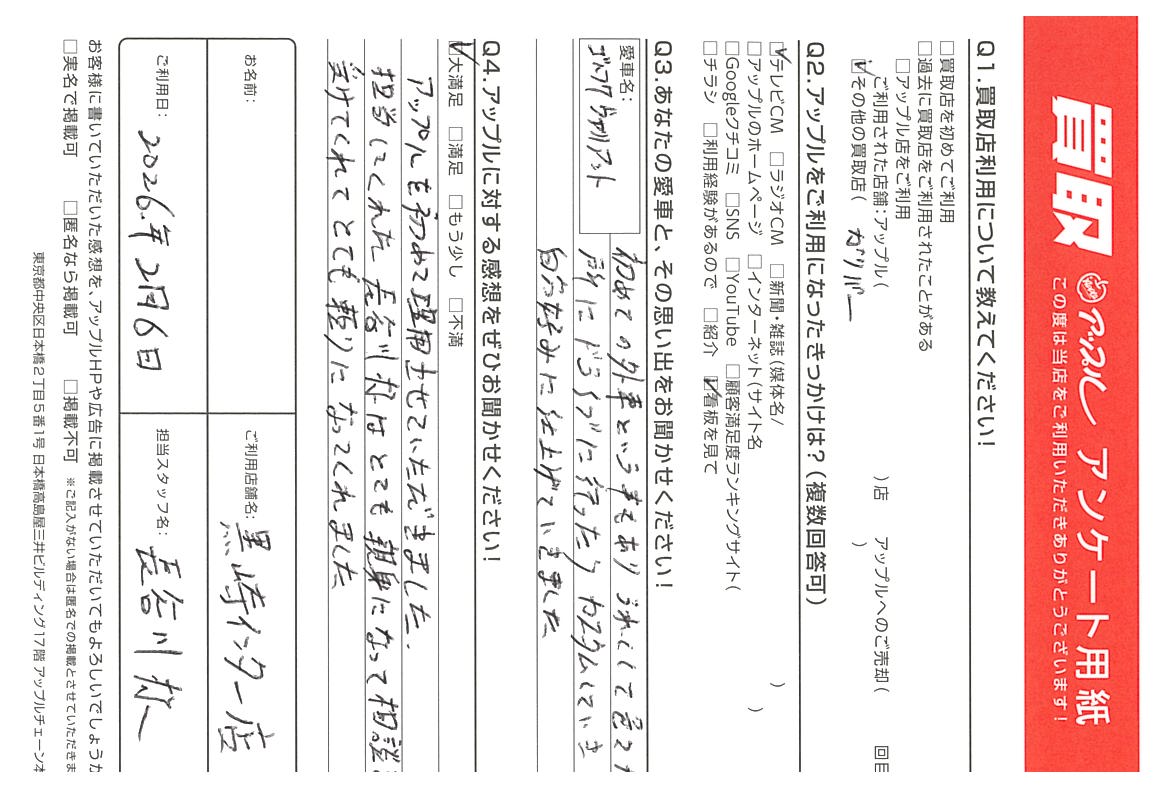 買取 アップル アンケート用紙
この度は当店をご利用いただきありがとうございます!
Q1.買取店利用について教えてください!
□買取店を初めてご利用
□過去に買取店をご利用されたことがある
□アップル店をご利用
ご利用された店舗:アップル( )店 アップルへのご売却( 回目
☑その他の買取店( ガリバー )
Q2.アップルをご利用になったきっかけは?(複数回答可)
☑テレビCM □ラジオCM □新聞・雑誌(媒体名/ )
□アップルのホームページ □インターネット(サイト名 )
□Googleクチコミ □SNS □YouTube □顧客満足度ランキングサイト(
□チラシ □利用経験があるので □紹介 ☑看板を見て
Q3.あなたの愛車と、その思い出をお聞かせください!
愛車名:
ゴルフヴァリアント
初めての外車という事もあり うれしくて
所にドライブに行ったり カスタムしていき
自分好みに仕上げていきました
Q4.アップルに対する感想をぜひお聞かせください!
☑大満足 □満足 □もう少し □不満
アップルを初めて理用させていただきました.
担当してくれた長谷川様はとても親身になって相談
受けてくれてとても頼りになってくれました
お名前:
ご利用店舗名: 黒崎インター店
ご利用日: 2026年2月6日
担当スタッフ名: 長谷川 様
お客様に書いていただいた感想を、アップルHPや広告に掲載させていただいてもよろしいでしょうか
□実名で掲載可 □匿名なら掲載可 □掲載不可 ※ご記入がない場合は匿名での掲載とさせていただきま
東京都中央区日本橋2丁目5番1号 日本橋髙島屋三井ビルディング17階 アップルチェーン本